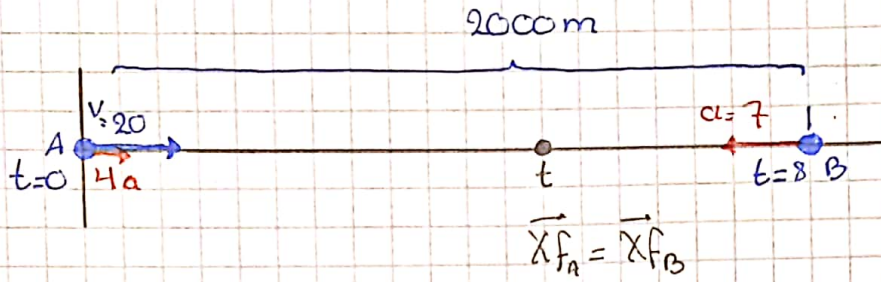 2000m
V=20
a=7
A
t=0
4a
t
t=8 B
Xf_A = Xf_B